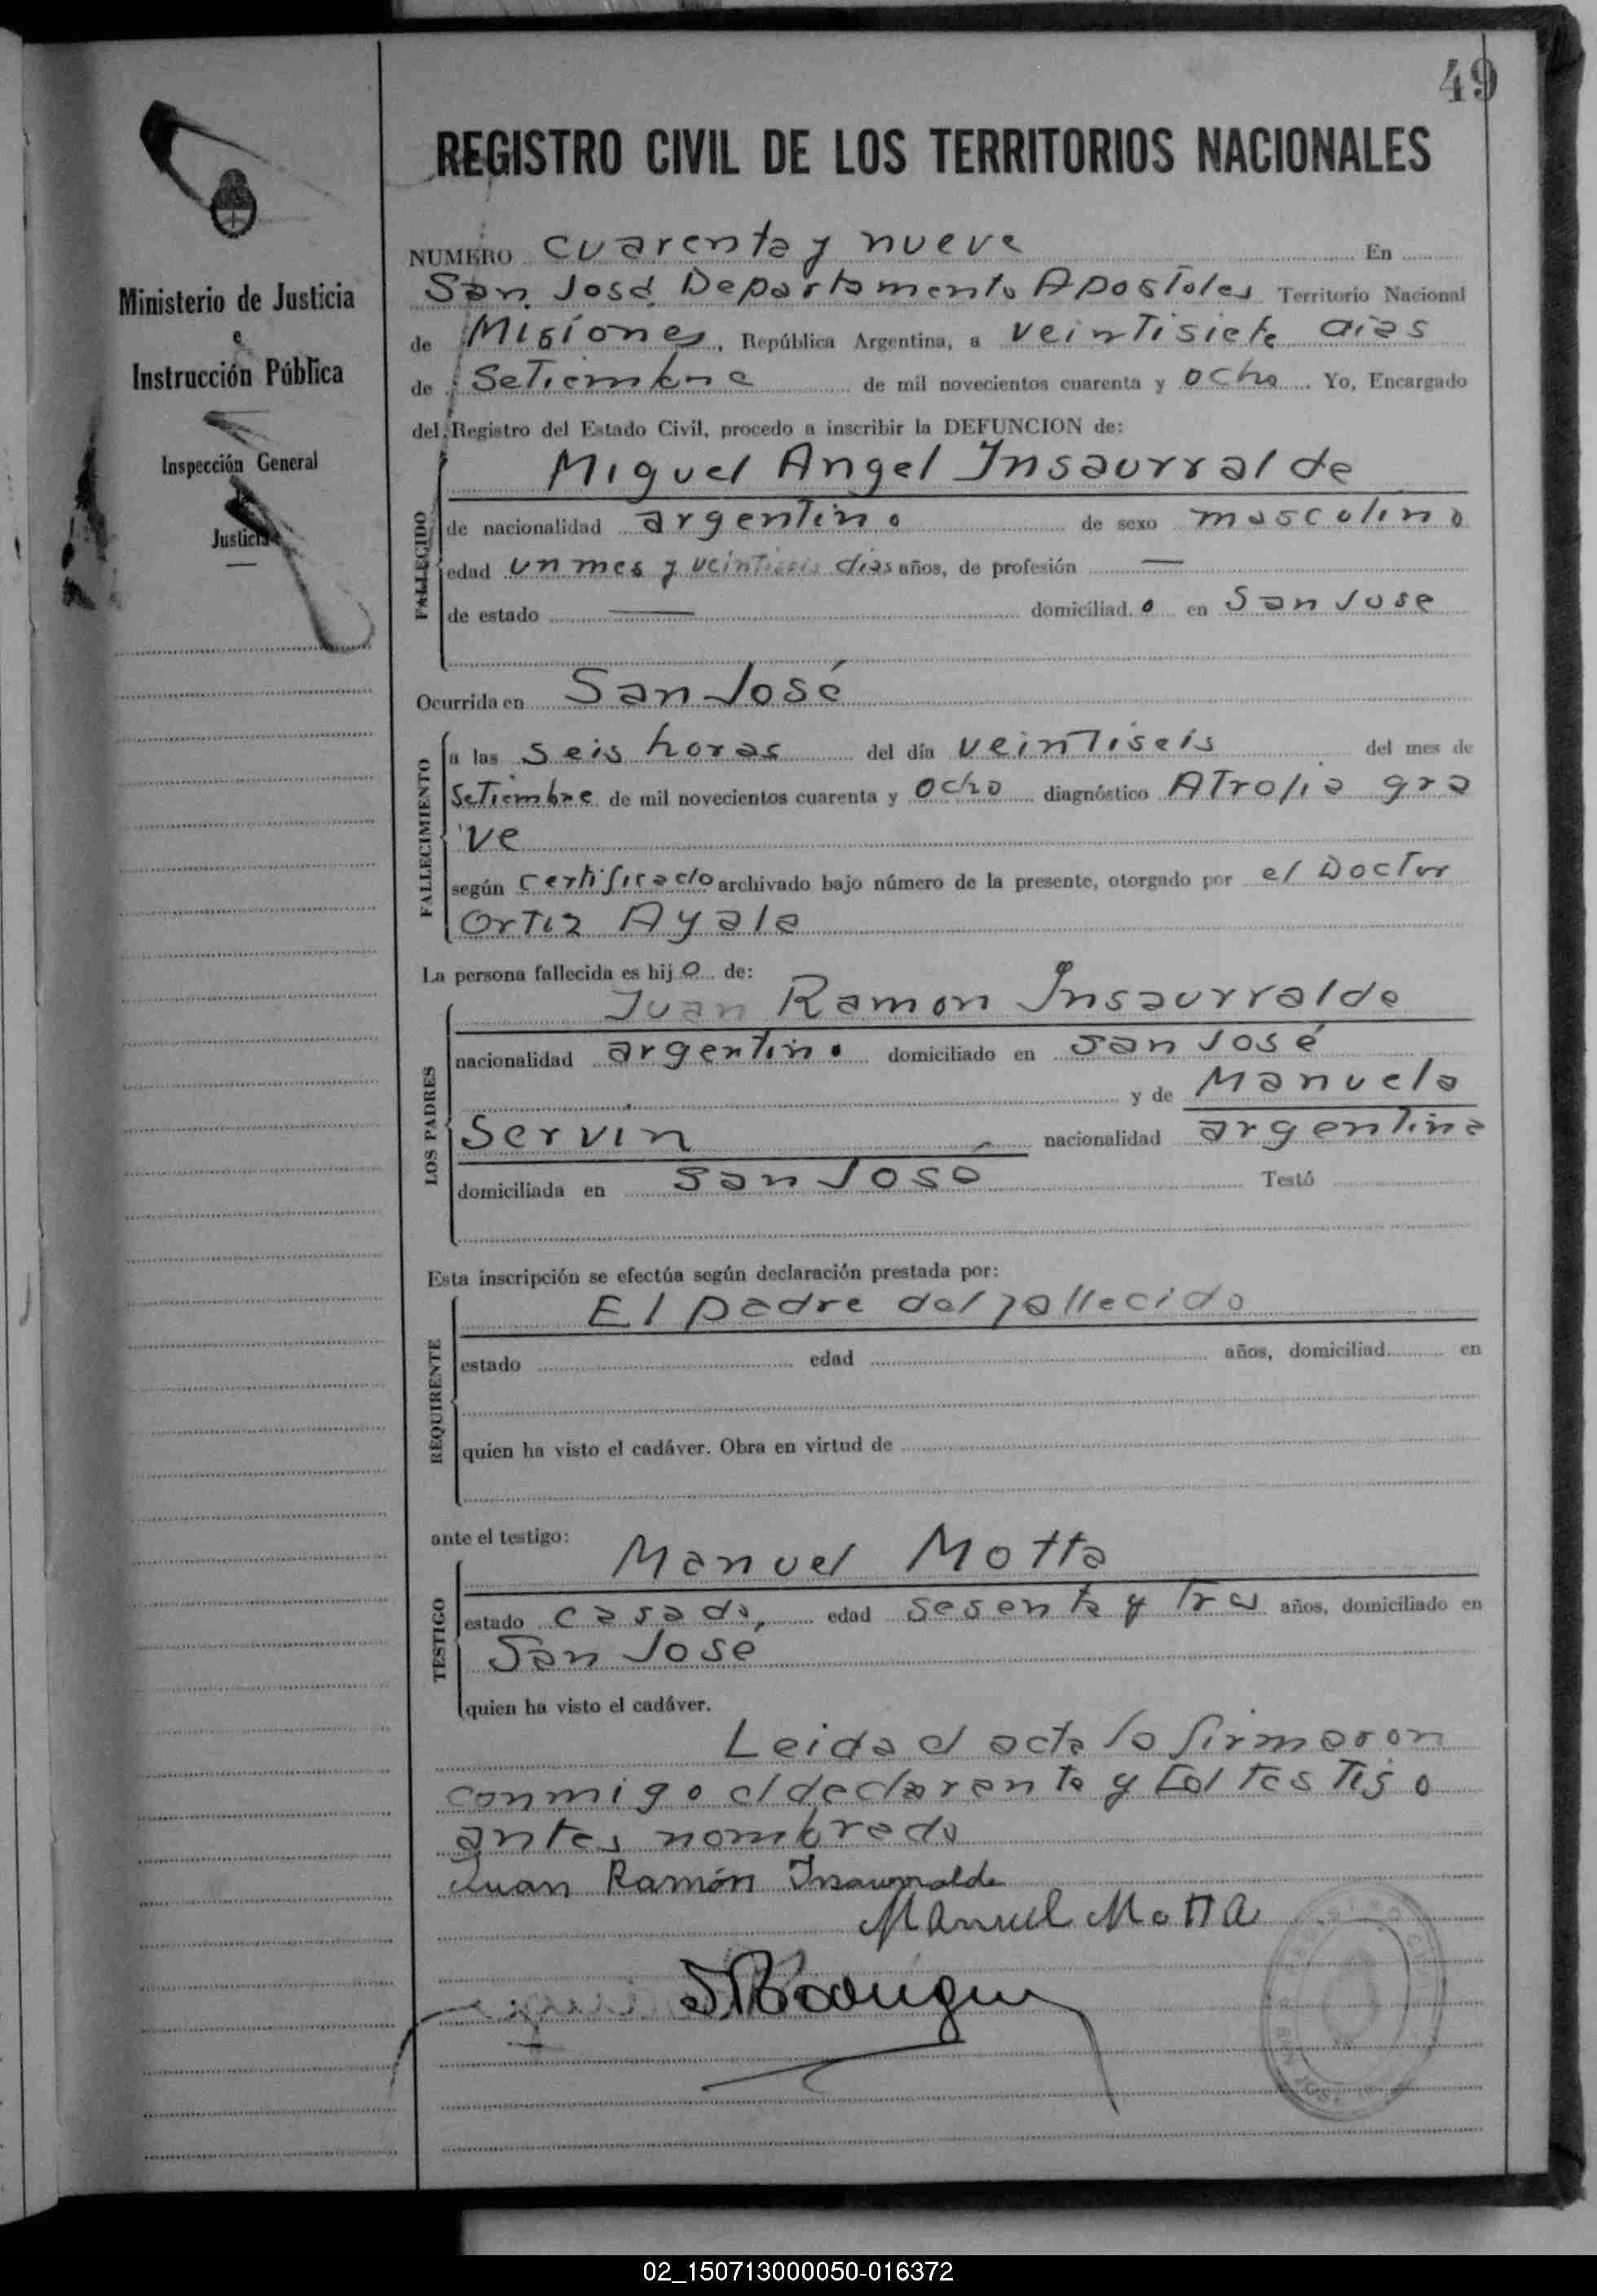 49
REGISTRO CIVIL DE LOS TERRITORIOS NACIONALES
Ministerio de Justicia
e
Instrucción Pública
Inspección General
Justicia
NUMERO cuarenta y nueve En
San José Departamento Apostoles Territorio Nacional
de Misiones, República Argentina, a veintisiete dias
de Setiembre de mil novecientos cuarenta y ocho. Yo, Encargado
del Registro del Estado Civil, procedo a inscribir la DEFUNCION de:
FALLECIDO
Miguel Angel Insaurralde
de nacionalidad argentino de sexo masculino
edad un mes y dias años, de profesión —
de estado — domiciliad.o en San Jose
Ocurrida en San José
FALLECIMIENTO
a las seis horas del día veintiseis del mes de
Setiembre de mil novecientos cuarenta y ocho diagnóstico Atrofia gra
ve
según certificado archivado bajo número de la presente, otorgado por el Doctor
Ortiz Ayala
La persona fallecida es hij o de:
LOS PADRES
Juan Ramon Insaurralde
nacionalidad argentino domiciliado en San José
y de Manuela
Servin nacionalidad argentina
domiciliada en San José Testó
Esta inscripción se efectúa según declaración prestada por:
REQUIRENTE
El padre del fallecido
estado edad años, domiciliad en
quien ha visto el cadáver. Obra en virtud de
ante el testigo:
TESTIGO
Manuel Motta
estado casado, edad sesenta y tres años, domiciliado en
San José
quien ha visto el cadáver.
Leida el acta la firmaron
conmigo el declarante y el testigo
antes nombrado
Juan Ramón Insaurralde
Manuel Motta
02_150713000050-016372